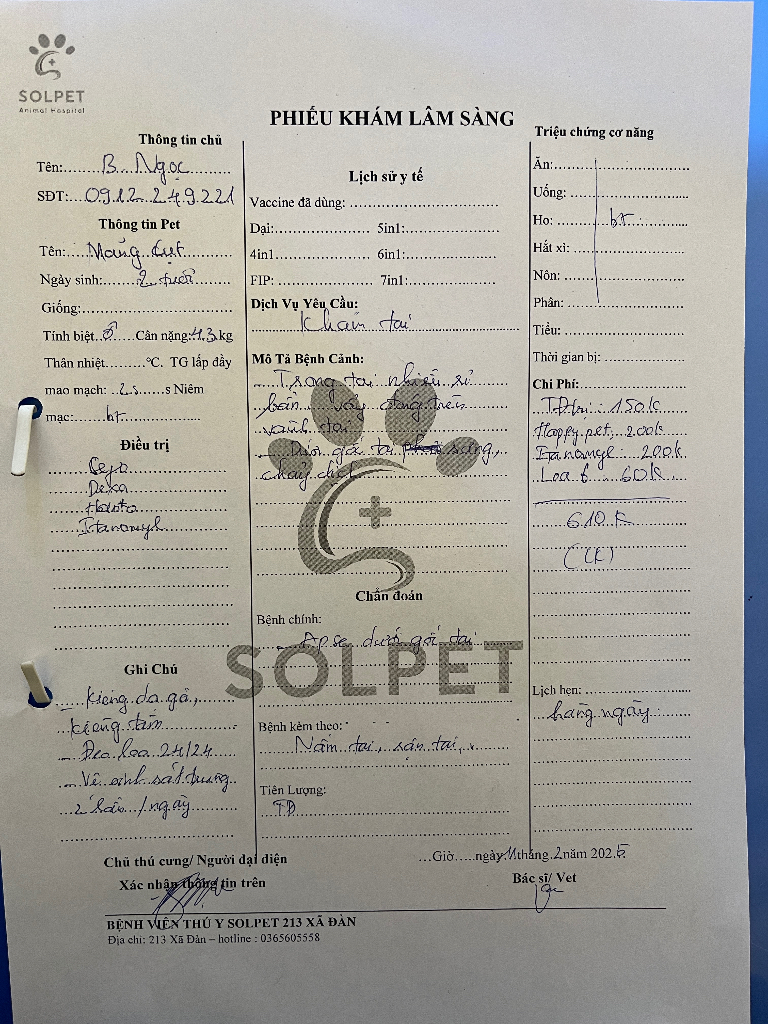 SOLPET
Animal Hospital
PHIẾU KHÁM LÂM SÀNG
Thông tin chủ
Tên: B. Ngọc
SĐT: 0912 249 221
Thông tin Pet
Tên: Măng Cụt
Ngày sinh: 2 tuổi
Giống:
Tính biệt ♂ Cân nặng: 4.3 kg
Thân nhiệt °C. TG lấp đầy
mao mạch: 2s s Niêm
mạc: bt
Điều trị
Dexa
Ghi Chú
- Kiêng da gà,
kiêng tắm
- Đeo loa 24/24
- Vệ sinh sát trùng
2 lần / ngày
Lịch sử y tế
Vaccine đã dùng:
Dại: 5in1:
4in1 6in1:
FIP: 7in1:
Dịch Vụ Yêu Cầu:
Khám tai
Mô Tả Bệnh Cảnh:
- Trong tai nhiều rỉ
bẩn, vảy đóng trên
vành tai
- Dưới gốc tai sưng,
chảy dịch
SOLPET
Chẩn đoán
Bệnh chính:
- Apse dưới gốc tai
Bệnh kèm theo:
Nấm tai, rận tai,
Tiên Lượng:
TD
Triệu chứng cơ năng
Ăn:
Uống:
Ho: bt
Hắt xì:
Nôn:
Phân:
Tiểu:
Thời gian bị:
Chi Phí:
150k
Happy pet 200k
200k
Loa 6 60k
610k
(CK)
Lịch hẹn:
hàng ngày
Chủ thú cưng/ Người đại diện
Xác nhận thông tin trên
Giờ ngày 11 tháng 2 năm 2025
Bác sĩ/ Vet
BỆNH VIỆN THÚ Y SOLPET 213 XÃ ĐÀN
Địa chỉ: 213 Xã Đàn – hotline : 0365605558